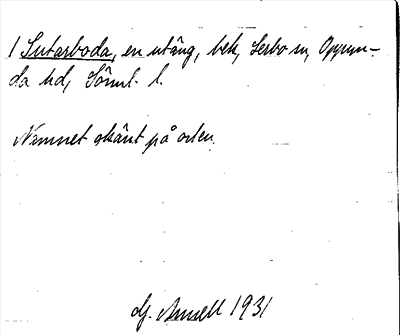 1 Sutarboda, en utäng, bek, Lerbo sn, Oppun-
da hd, Sörml. l.
Namnet okänt på orten.
Hj. Annell 1931